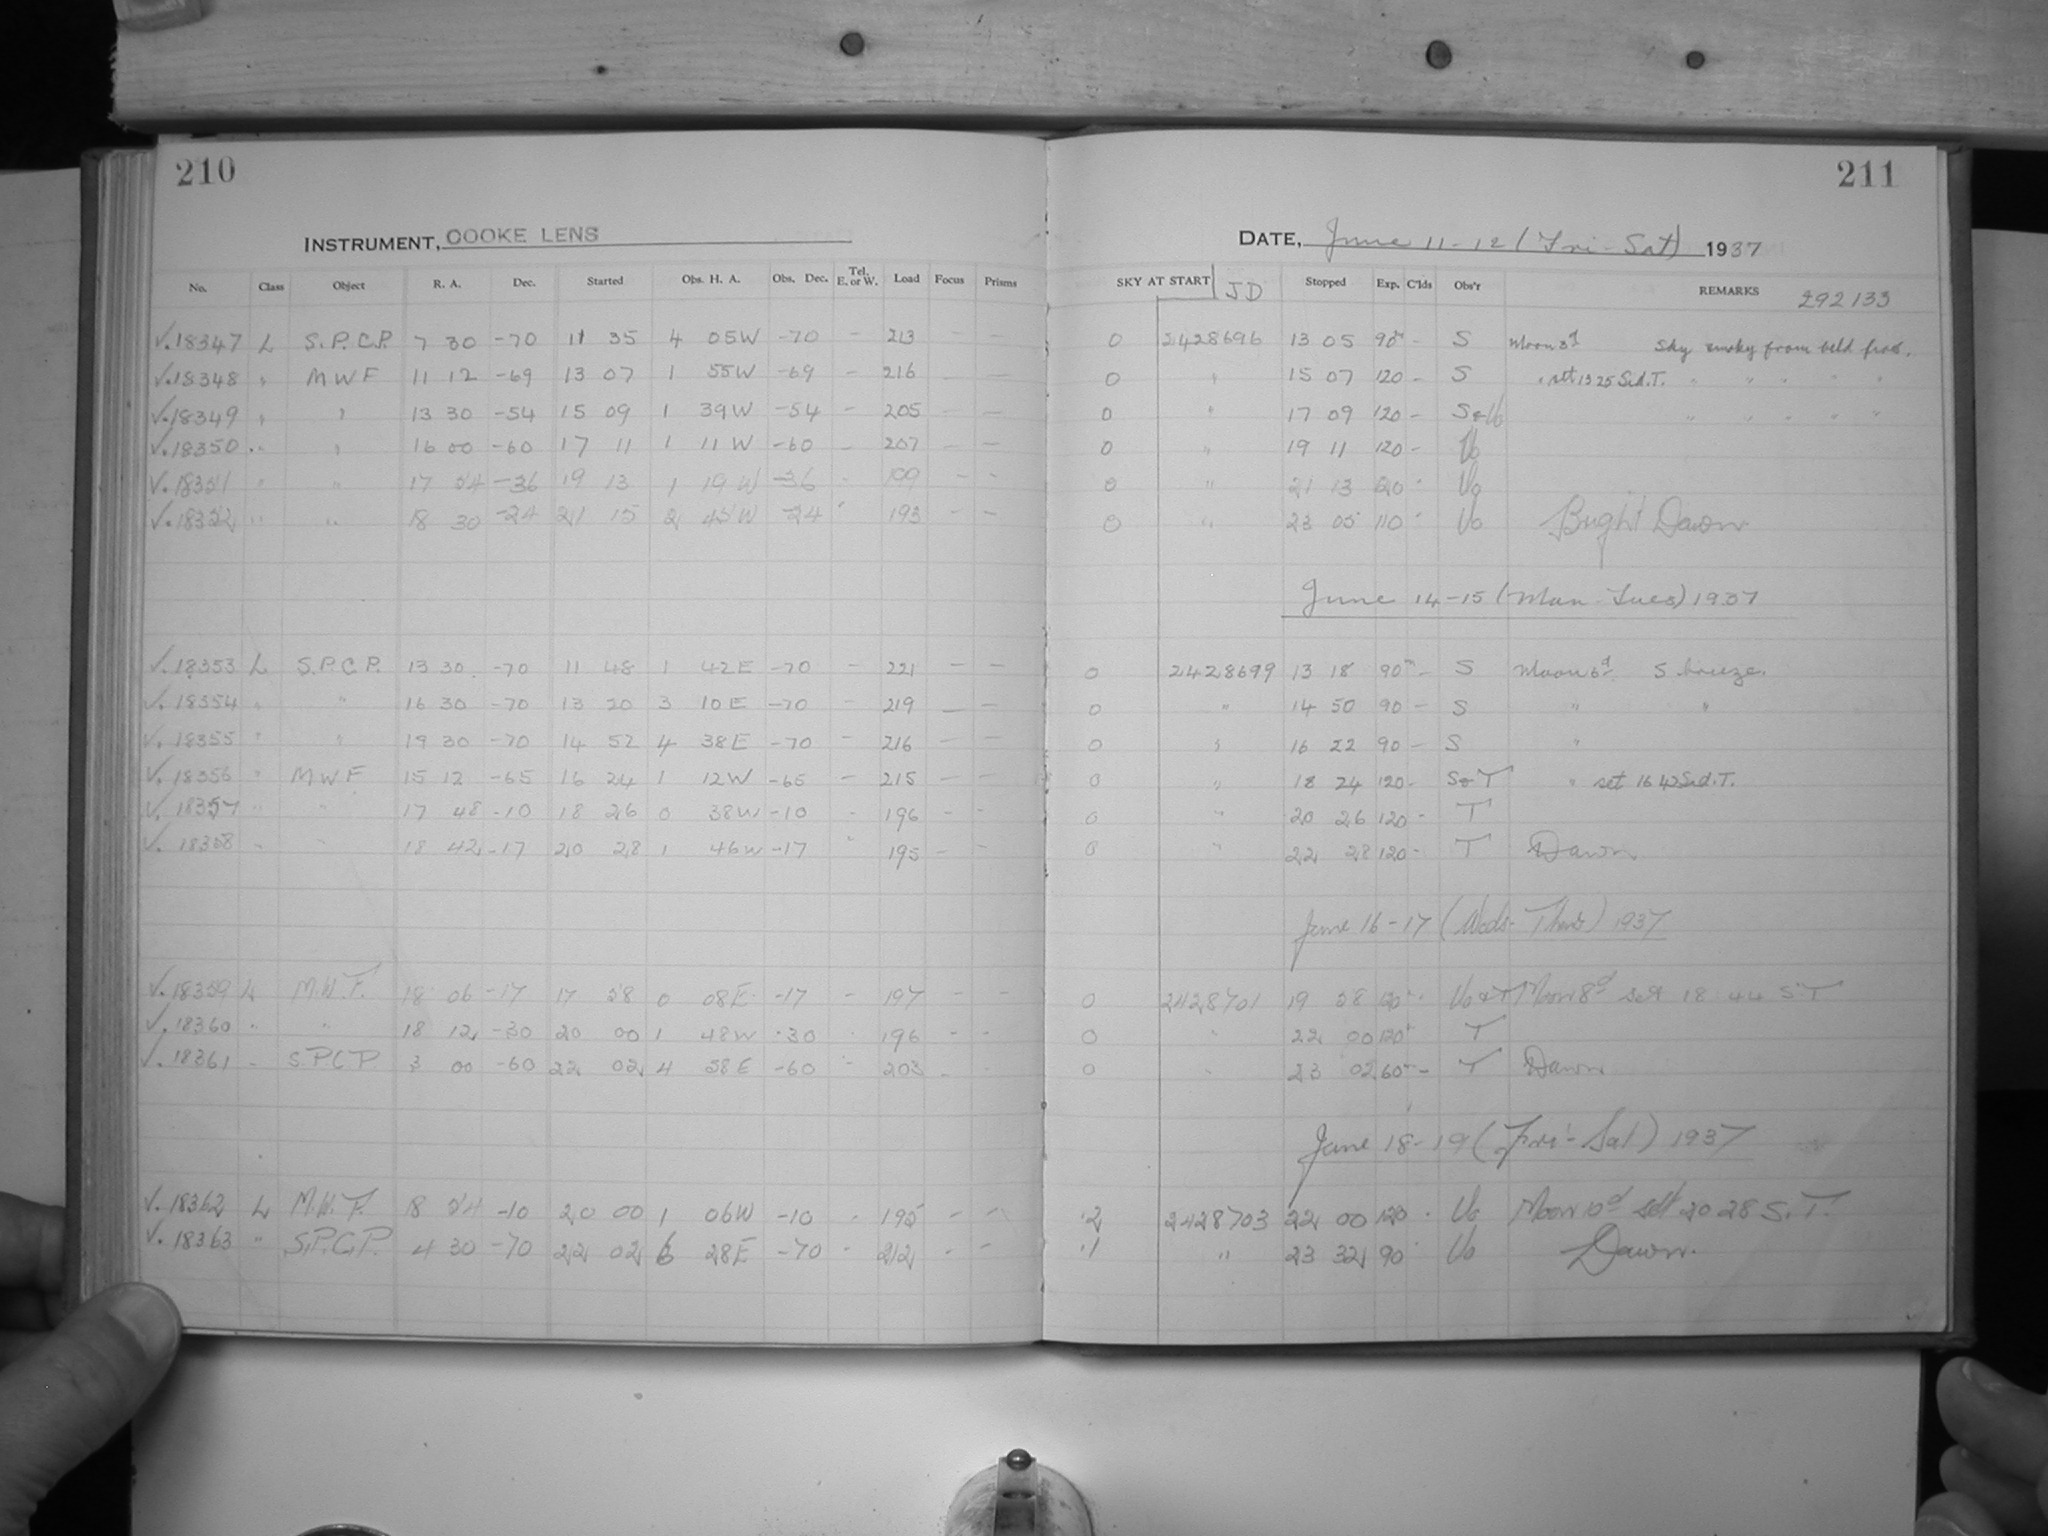 210
INSTRUMENT, COOKE LENS
No. Class Object R. A. Dec. Started Obs. H. A. Obs. Dec. Tel. E. or W. Load Focus Prisms
√.18347 L S.P.C.P. 7 30 -70 11 35 4 05W -70 - 213 - -
√.18348 " M W F 11 12 -69 13 07 1 55W -69 - 216 - -
√.18349 " " 13 30 -54 15 09 1 39W -54 - 205 - -
√.18350 " " 16 00 -60 17 11 1 11W -60 - 207 - -
√.18351 " " 17 54 -36 19 13 1 19W -36 - 199 - -
√.18352 " " 18 30 -24 21 15 2 45W -24 " 193 - -
√.18353 L S.P.C.P. 13 30 -70 11 48 1 42E -70 - 221 - -
√.18354 " " 16 30 -70 13 20 3 10E -70 - 219 - -
√.18355 " " 19 30 -70 14 52 4 38E -70 - 216 - -
√.18356 " M W F 15 12 -65 16 24 1 12W -65 - 215 - -
√.18357 " " 17 48 -10 18 26 0 38W -10 - 196 - -
√.18358 " " 18 42 -17 20 28 1 46W -17 " 195 - -
√.18359 L M.W.F. 18 06 -17 17 58 0 08E -17 - 197 - -
√.18360 " " 18 12 -30 20 00 1 48W -30 - 196 - -
√.18361 - S.P.C.P. 3 00 -60 22 02 4 58E -60 - 203 - -
√.18362 L M.W.F. 18 54 -10 20 00 1 06W -10 - 195 - -
√.18363 " S.P.C.P. 4 30 -70 22 02 6 28E -70 - 212 - -
211
DATE, June 11-12 (Fri-Sat) 1937
SKY AT START JD Stopped Exp. C'lds Obs'r REMARKS 292133
0 2428696 13 05 90m - S Moon 3d Sky smoky from veld fires.
0 " 15 07 120 - S " set 13 25 Sid.T. " " " " "
0 " 17 09 120 - S & Vo " " " " "
0 " 19 11 120 - Vo
0 " 21 13 120 - Vo
0 " 23 05 110 - Vo Bright Dawn
June 14-15 (Mon-Tues) 1937
0 2428699 13 18 90m - S Moon 6d. S breeze.
0 " 14 50 90 - S " "
0 " 16 22 90 - S "
0 " 18 24 120 - S & T " set 16 42 Sid.T.
0 " 20 26 120 - T
0 " 22 28 120 - T Dawn
June 16-17 (Weds-Thurs) 1937
0 2428701 19 58 120 - Vo & T Moon 8d set 18 44 S T
0 " 22 00 120 T
0 " 23 02 60 - T Dawn
June 18-19 (Fri-Sat) 1937
.2 2428703 22 00 120 - Vo Moon 10d set 20 28 S.T.
.1 " 23 32 90 - Vo Dawn.